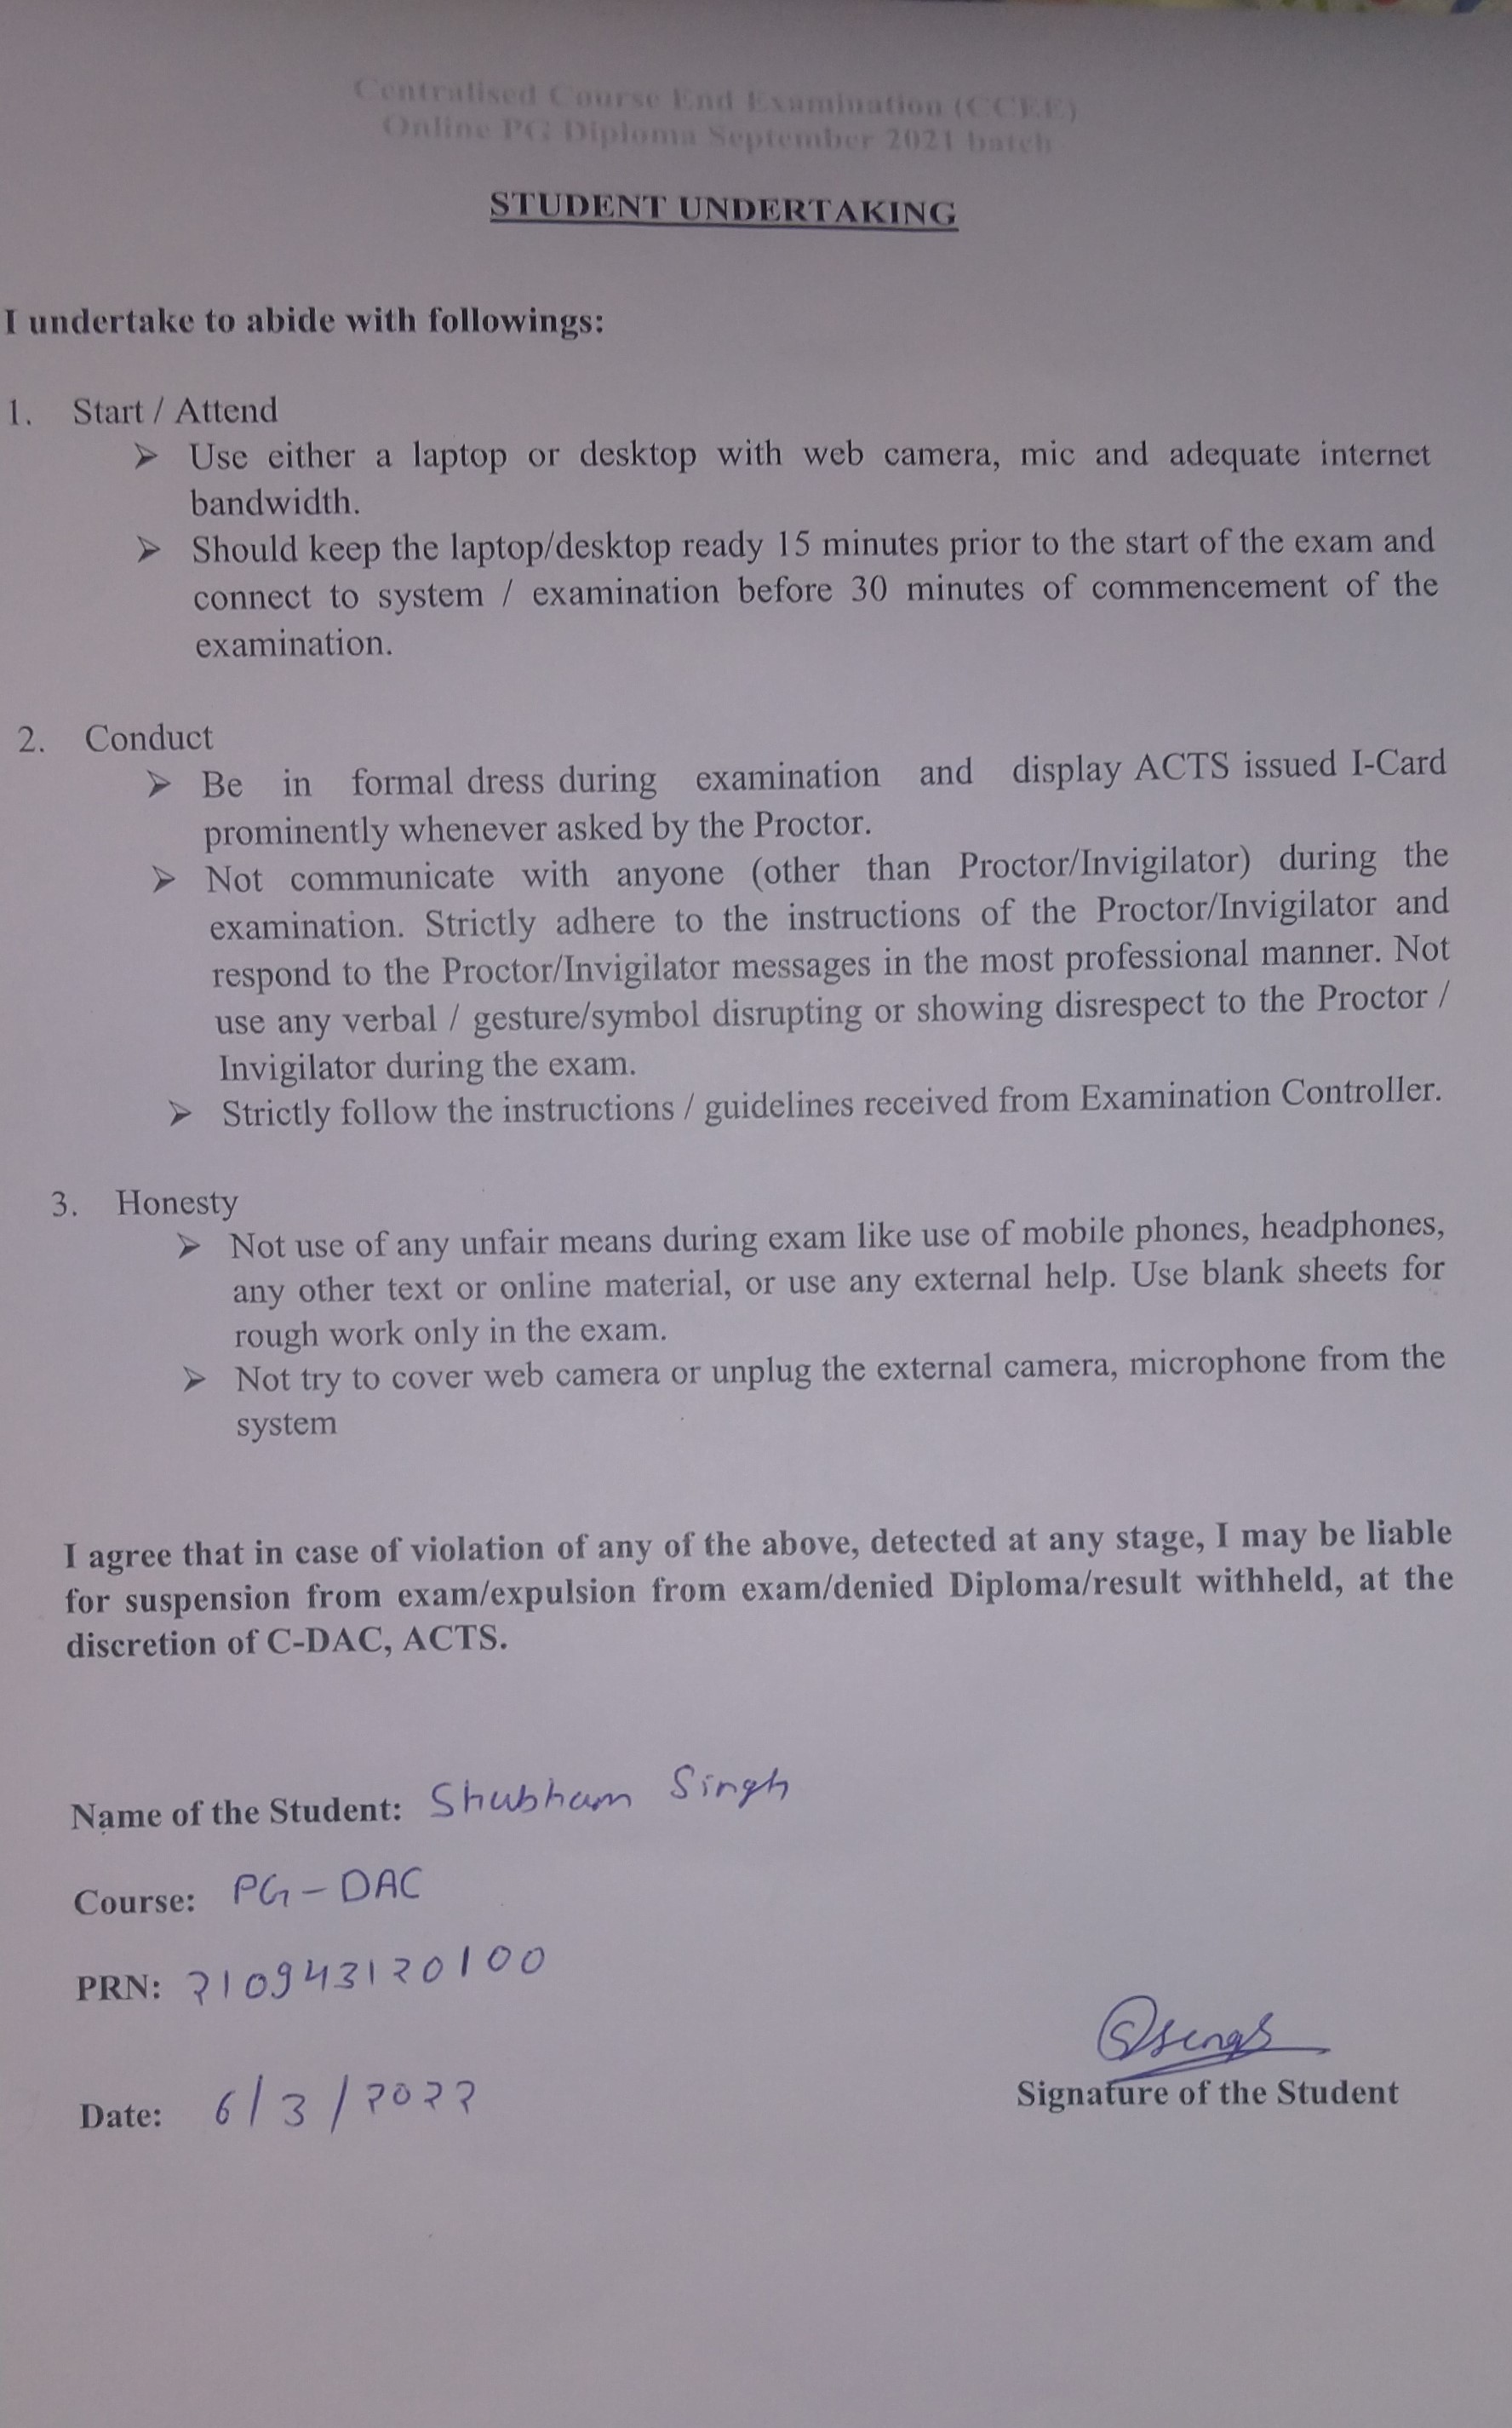 Centralised Course End Examination (CCEE)
Online PG Diploma September 2021 batch
STUDENT UNDERTAKING
I undertake to abide with followings:
1. Start / Attend
➢ Use either a laptop or desktop with web camera, mic and adequate internet
bandwidth.
➢ Should keep the laptop/desktop ready 15 minutes prior to the start of the exam and
connect to system / examination before 30 minutes of commencement of the
examination.
2. Conduct
➢ Be in formal dress during examination and display ACTS issued I-Card
prominently whenever asked by the Proctor.
➢ Not communicate with anyone (other than Proctor/Invigilator) during the
examination. Strictly adhere to the instructions of the Proctor/Invigilator and
respond to the Proctor/Invigilator messages in the most professional manner. Not
use any verbal / gesture/symbol disrupting or showing disrespect to the Proctor /
Invigilator during the exam.
➢ Strictly follow the instructions / guidelines received from Examination Controller.
3. Honesty
➢ Not use of any unfair means during exam like use of mobile phones, headphones,
any other text or online material, or use any external help. Use blank sheets for
rough work only in the exam.
➢ Not try to cover web camera or unplug the external camera, microphone from the
system
I agree that in case of violation of any of the above, detected at any stage, I may be liable
for suspension from exam/expulsion from exam/denied Diploma/result withheld, at the
discretion of C-DAC, ACTS.
Name of the Student: Shubham Singh
Course: PG-DAC
PRN: 210943120100
Date: 6/3/2022
Signature of the Student